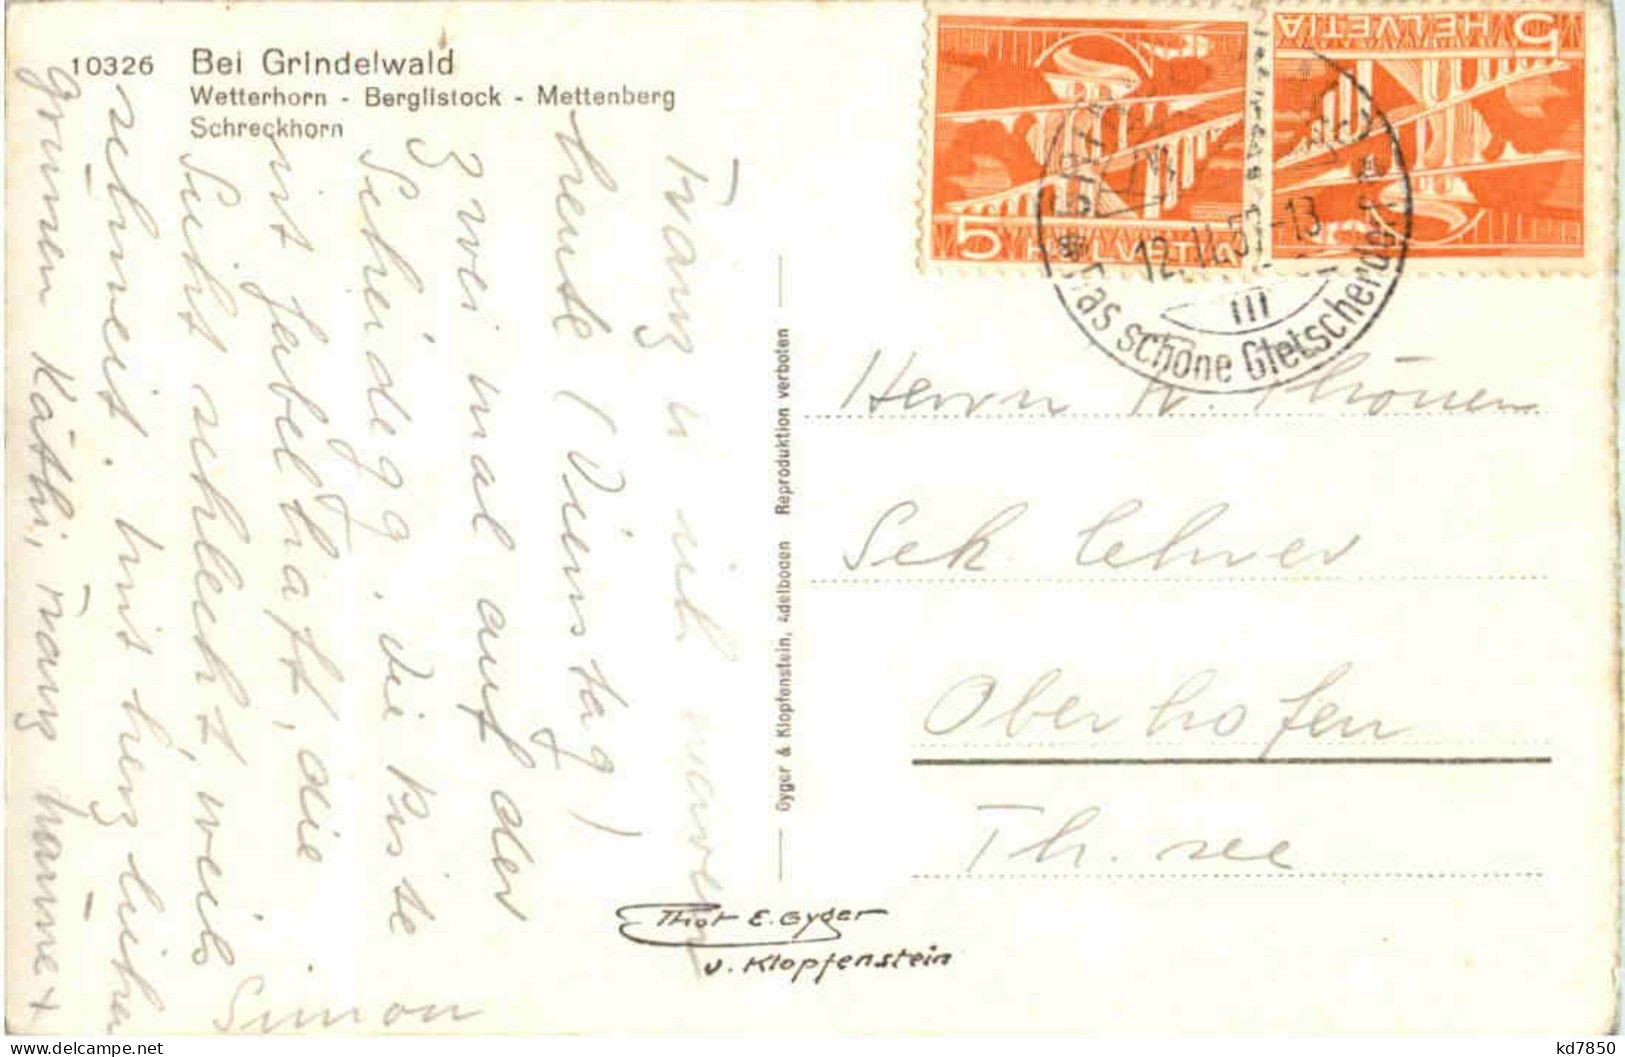 10326 Bei Grindelwald
Wetterhorn - Berglistock - Mettenberg
Schreckhorn
Fränz u ich waren
heute (Dienstag)
zwei mal auf der
Scheidegg. Die Piste
ist fabelhaft, die
Sicht schlecht, weils
schneit. Mit herzlichen
Grüssen Käthi, Fränz, Hanne +
Simon
Gyger & Klopfenstein, Adelboden Reproduktion verboten
Phot E. Gyger
u. Klopfenstein
HELVETIA 5
5 HELVETIA
12. II. 57-13
III
Das schöne Gletscherdorf
Herrn
Sek. Lehrer
Oberhofen
Th. see
kd7850